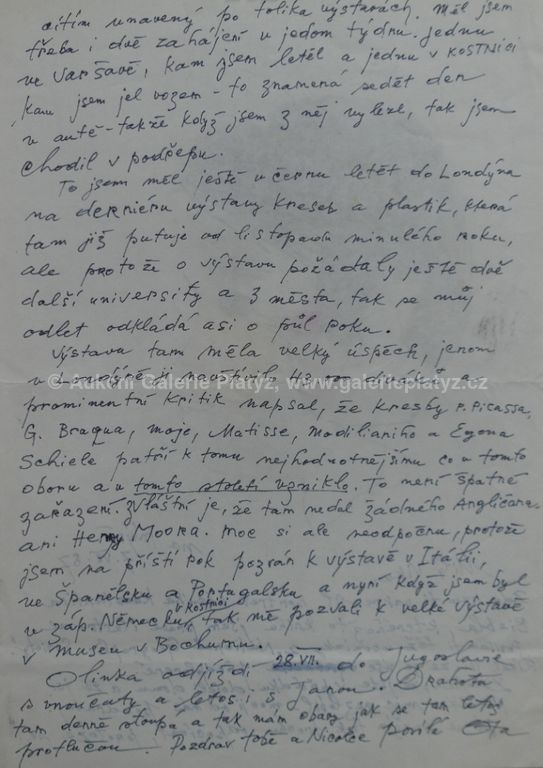 cítím unavený po tolika výstavách. Měl jsem
třeba i dvě zahájení v jedom týdnu. Jednu
ve Varšavě, kam jsem letěl a jednu v KOSTNICI
kam jsem jel vozem - to znamená sedět den
v autě - takže když jsem z něj vylezl, tak jsem
chodil v podřepu.
To jsem měl ještě v černu letět do Londýna
na derniéru výstavy kreseb a plastik, která
tam již putuje od listopadu minulého roku,
ale protože o výstavu požádaly ještě dvě
další university a 3 města, tak se můj
odlet odkládá asi o půl roku.
Výstava tam měla velký úspěch, jenom
v Londýně ji navštívilo
© Aukční Galerie Platýz, www.galerieplatyz.cz
prominentní kritik napsal, že kresby P. Picassa,
G. Braqua, moje, Matisse, Modilianiho a Egona
Schiele patří k tomu nejhodnotnějšímu co v tomto
oboru a v tomto století vzniklo. To není špatné
zařazení. Zvláštní je, že tam nedal žádného Angličana,
ani Henry Moora. Moc si ale neodpočnu, protože
jsem na příští rok pozván k výstavě v Itálii,
ve Španělsku a Portugalsku a nyní když jsem byl
v záp. Německu, v Kostnici tak mě pozvali k velké výstavě
v museu v Bochumu.
Olinka odjíždí 28.VII. do Jugoslavie
s vnoučaty a letos i s Janou. Drahota
tam denně stoupá a tak mám obavy jak se tam letos
protlučou. Pozdrav tobě a Nicolce posílá Ota